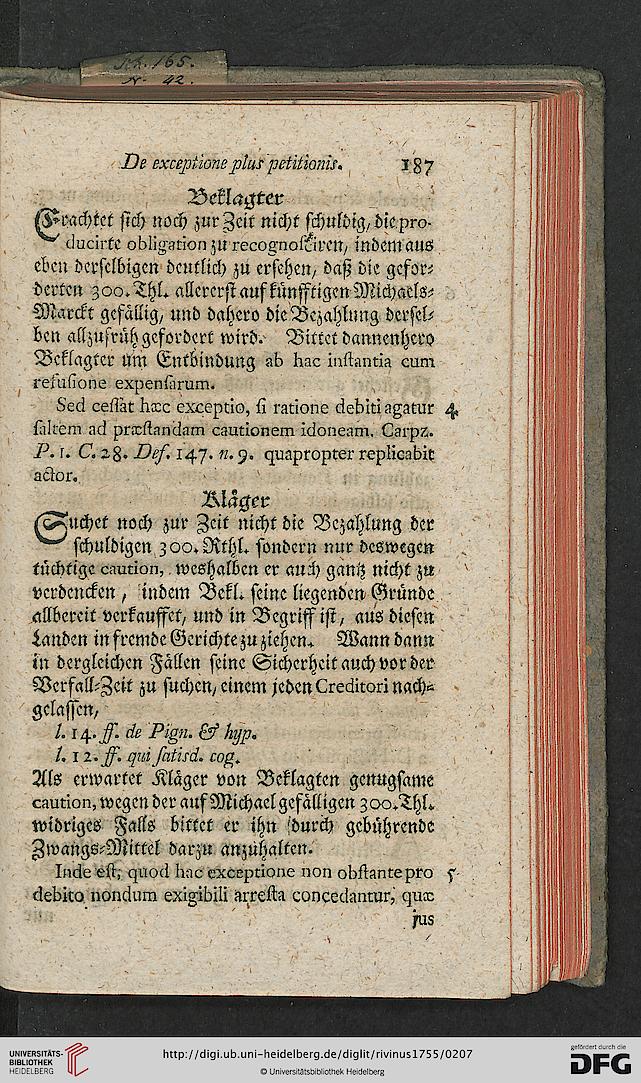 Sch. 165.
N. 92.
De exceptione plus petitionis. 187
Beklagter
Erachtet sich noch zur Zeit nicht schuldig, die pro-
ducirte obligation zu recognosciren, indem aus
eben derselbigen deutlich zu ersehen, daß die gefor-
derten 300. Thl. allererst auf künfftigen Michaels-
Marckt gefällig, und dahero die Bezahlung dersel-
ben allzufrüh gefordert wird. Bittet dannenhero
Beklagter um Entbindung ab hac instantia cum
refusione expensarum.
Sed cessat hæc exceptio, si ratione debiti agatur 4.
saltem ad præstandam cautionem idoneam. Carpz.
P. 1. C. 28. Def. 147. n. 9. quapropter replicabit
actor.
Kläger
Suchet noch zur Zeit nicht die Bezahlung der
schuldigen 300. Rthl. sondern nur deswegen
tüchtige caution, weshalben er auch gantz nicht zu
verdencken, indem Bekl. seine liegenden Gründe
allbereit verkauffet, und in Begriff ist, aus diesen
Landen in fremde Gerichte zu ziehen. Wann dann
in dergleichen Fällen seine Sicherheit auch vor der
Verfall-Zeit zu suchen, einem jeden Creditori nach-
gelassen,
l. 14. ff. de Pign. & hyp.
l. 12. ff. qui satisd. cog.
Als erwartet Kläger von Beklagten genugsame
caution, wegen der auf Michael gefälligen 300. Thl.
widriges Falls bittet er ihn durch gebührende
Zwangs-Mittel darzu anzuhalten.
Inde est, quod hac exceptione non obstante pro 5
debito nondum exigibili arresta concedantur, quæ
jus
UNIVERSITÄTS-
BIBLIOTHEK
HEIDELBERG
http://digi.ub.uni-heidelberg.de/diglit/rivinus1755/0207
© Universitätsbibliothek Heidelberg
gefördert durch die
DFG